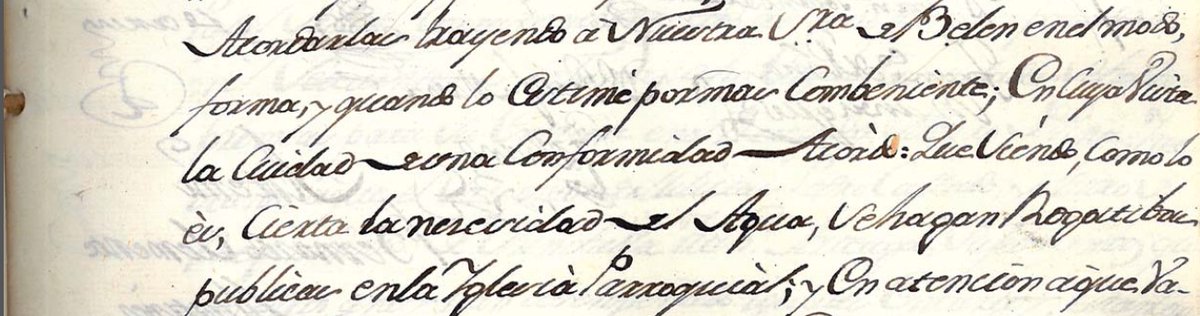 Acordarlas trayendo à Nuestra Sra de Belen en el modo,
forma, y quando lo Estime por mas Combeniente; En cuya Vista
la Ciudad de una Conformidad Acordò: Que siendo, como lo
ès, Cierta la nesesidad del Agua, se hagan Rogatibas
publicas en la Yglesia Parroquial; y En atencion à que Va-